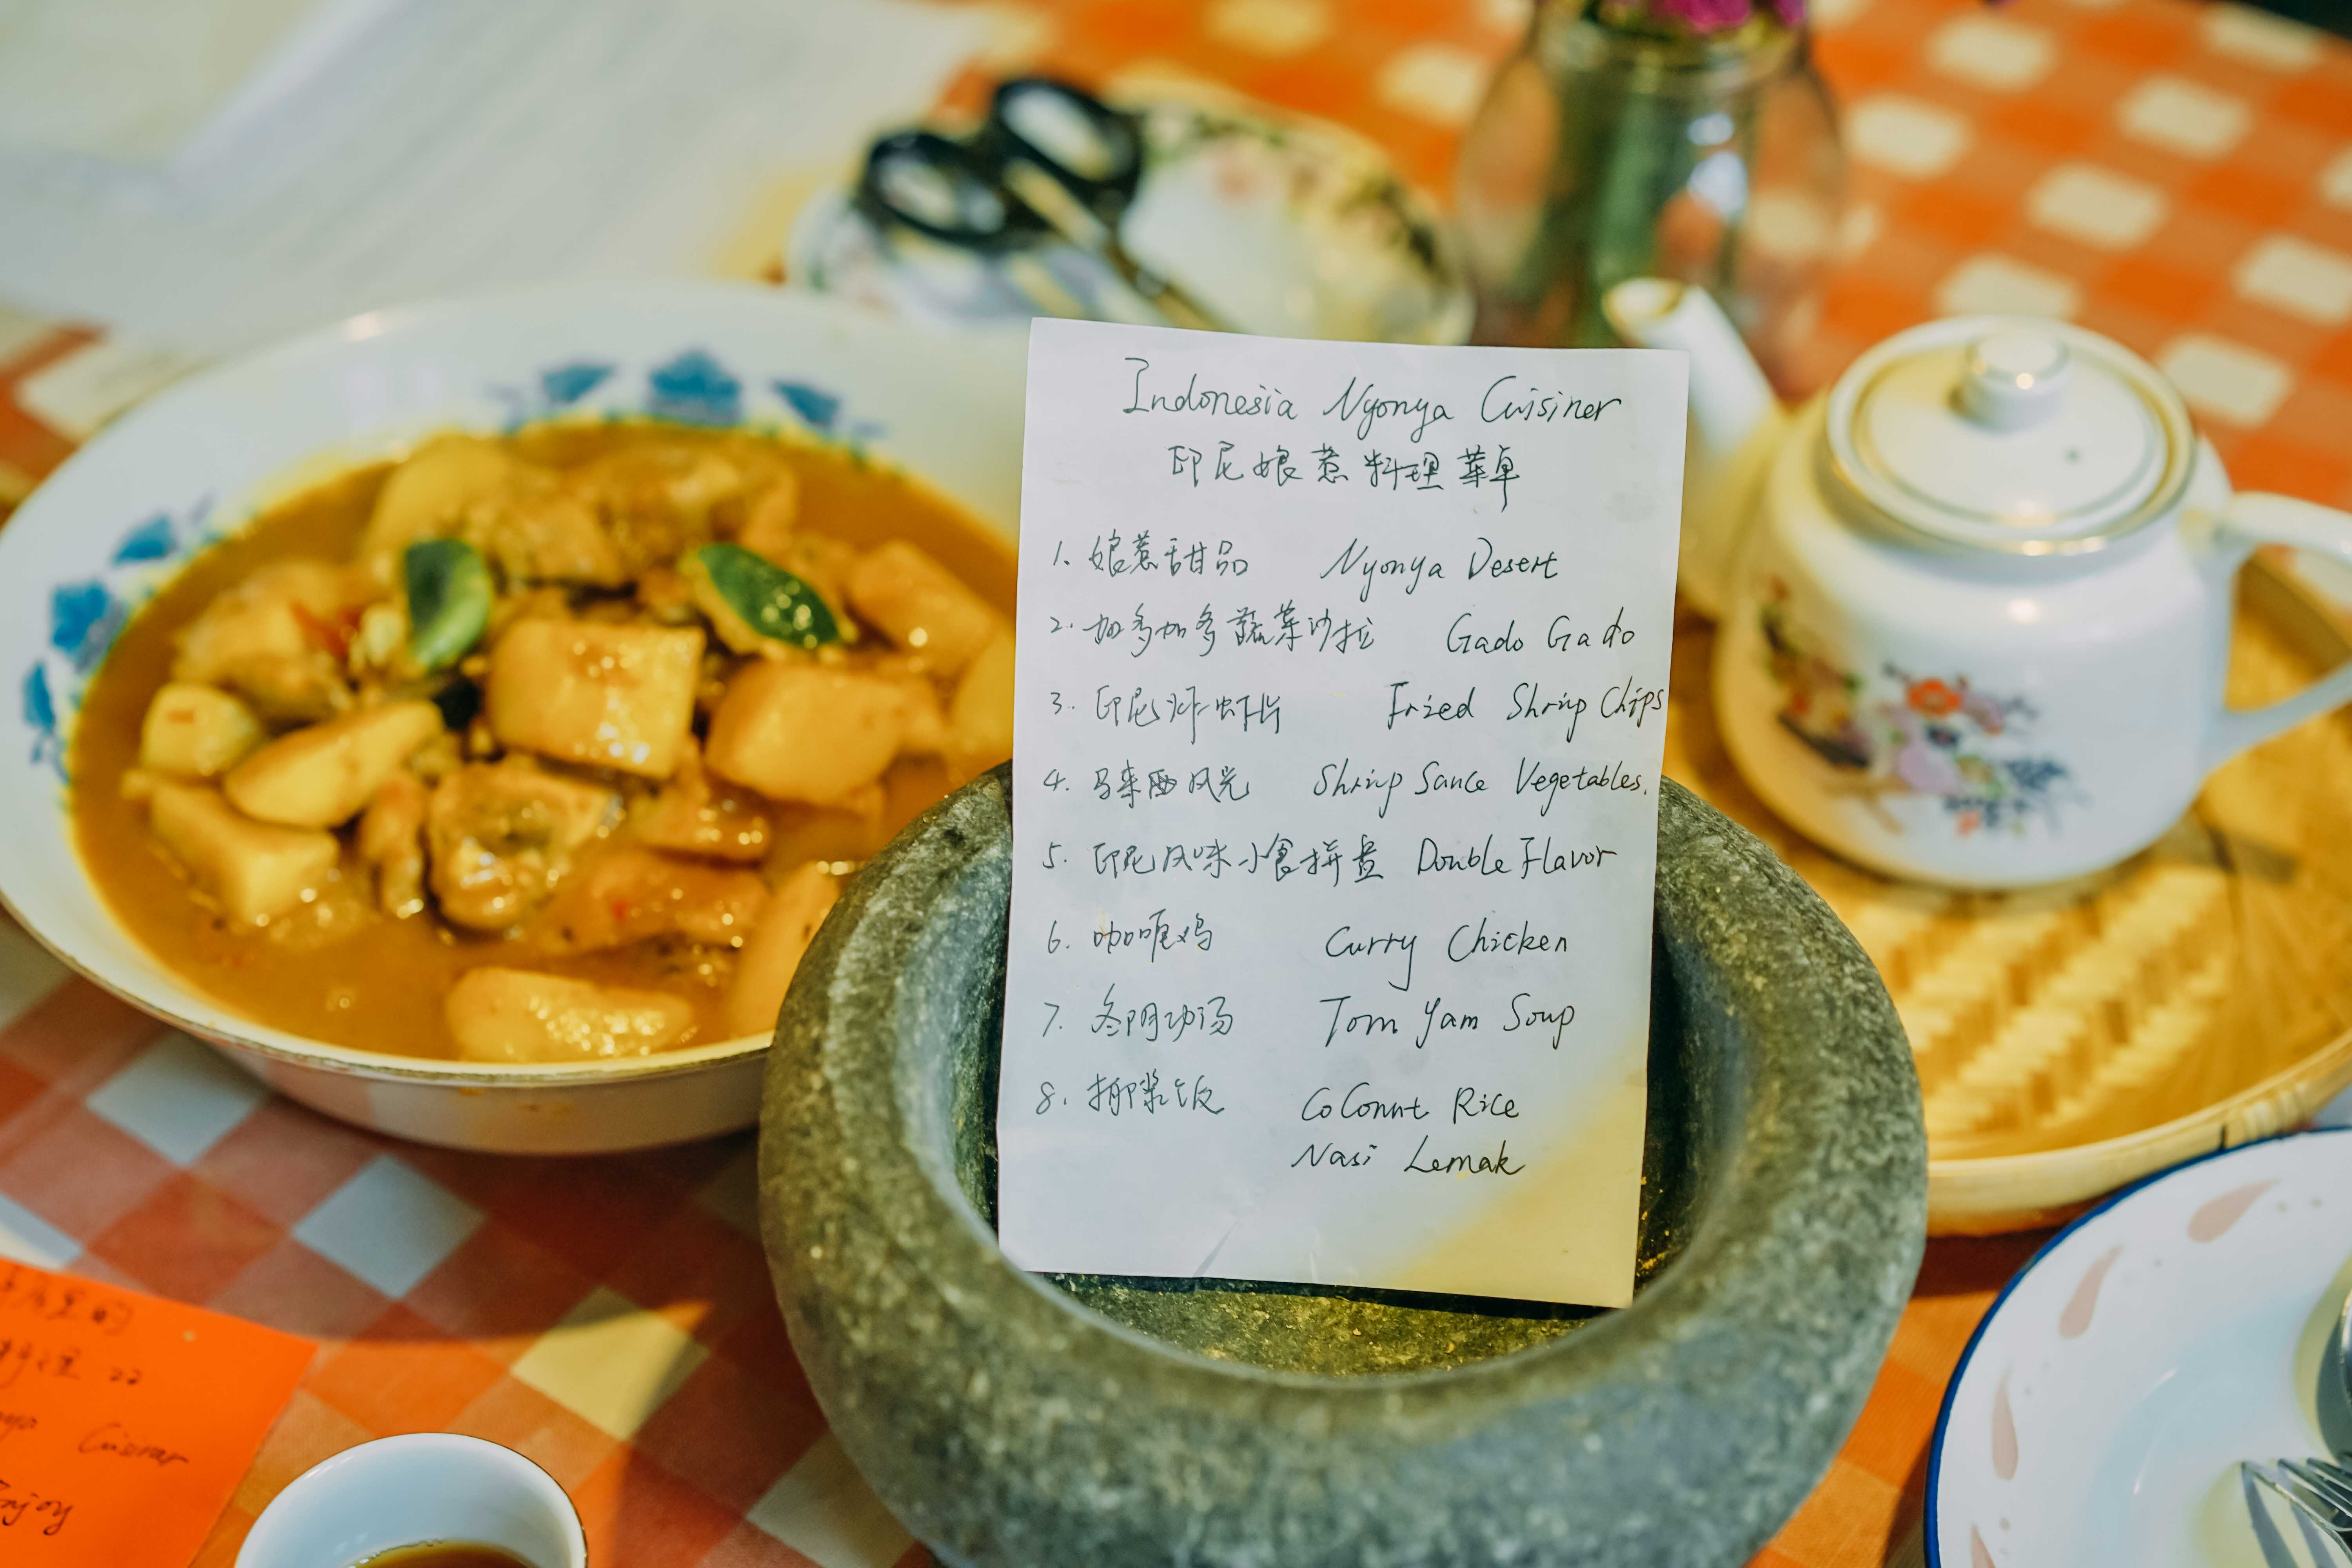 Indonesia Nyonya Cuisiner
印尼娘惹料理菜单
1. 娘惹甜品 Nyonya Desert
2. 加多加多蔬菜沙拉 Gado Gado
3. 印尼炸虾片 Fried Shrinp Chips
4. 马来西风光 Shrinp Sauce Vegetables.
5. 印尼风味小食拼盘 Double Flavor
6. 咖喱鸡 Curry Chicken
7. 冬阴功汤 Tom Yam Soup
8. 椰浆饭 CoConut Rice
Nasi Lemak
Cuisiner
Enjoy